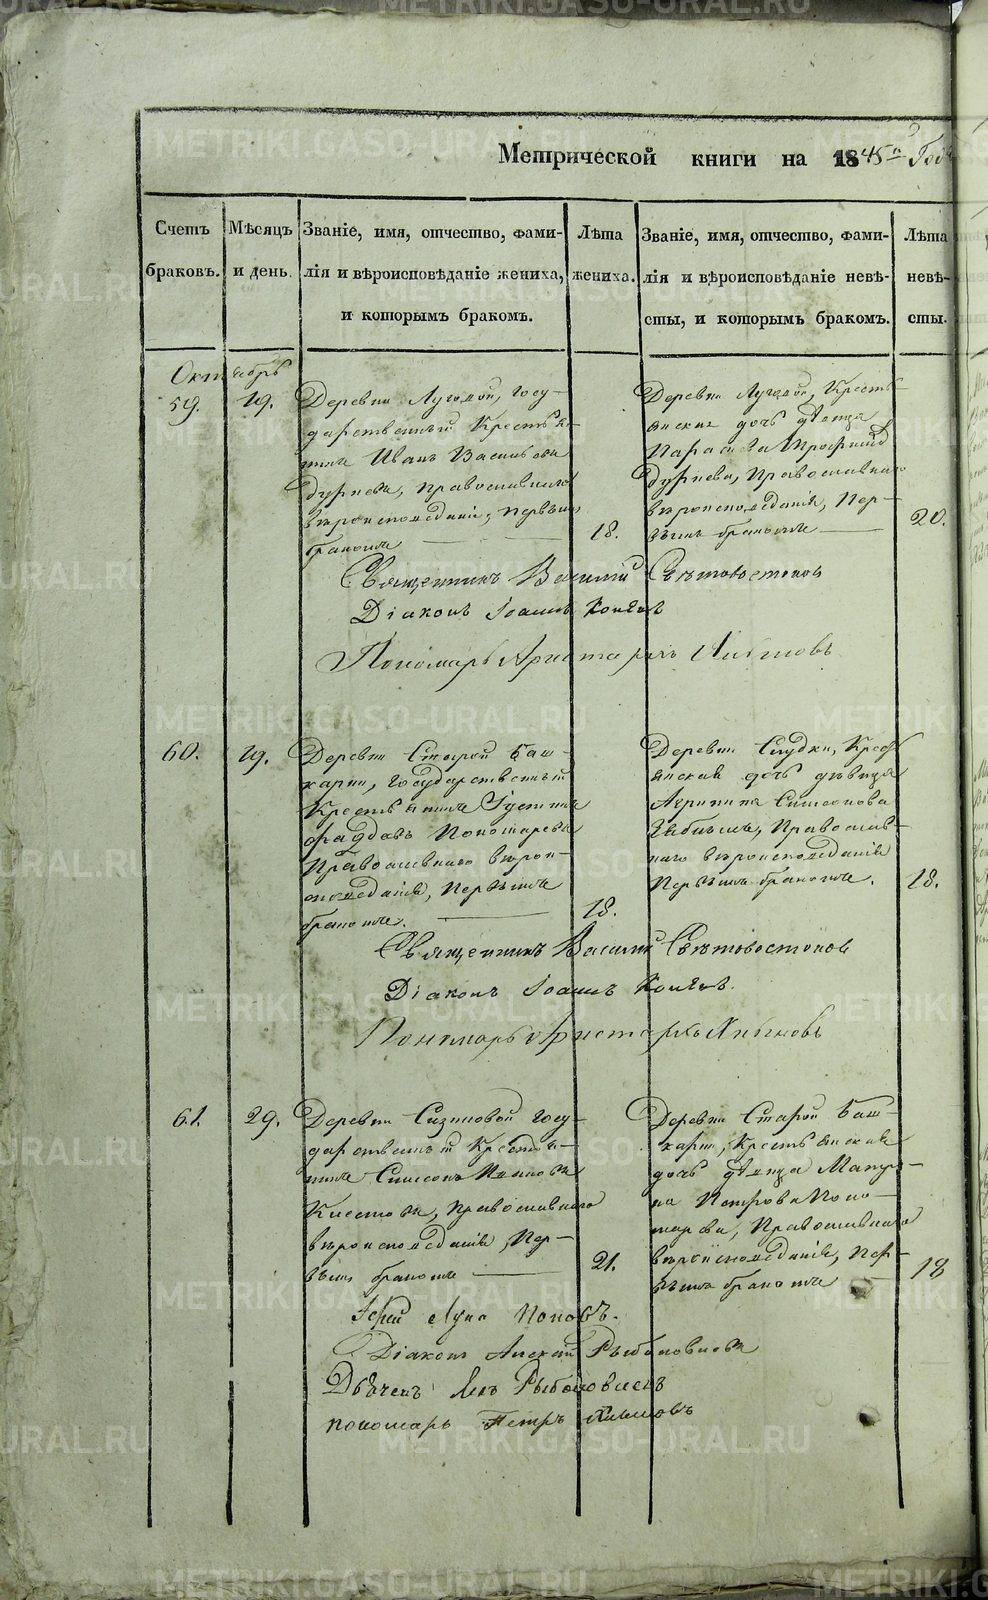 Метрической книги на 1845й Годъ
Счетъ браковъ.
Мѣсяцъ и день.
Званіе, имя, отчество, фами-
лія и вѣроисповѣданіе жениха,
и которымъ бракомъ.
Лѣта жениха.
Званіе, имя, отчество, фами-
лія и вѣроисповѣданіе невѣ-
сты, и которымъ бракомъ.
Лѣта невѣ-
сты.
Октябрь
59.
19.
Деревни Луговой, Госу-
дарственный Крестья-
нинъ Иванъ Васильевъ
Дурневъ, Православнаго
вѣроисповеданія, Первымъ
бракомъ
18.
Деревни Луговой, Кресть-
янская дочь девица
Параскева
Дурнева, Православнаго
вѣроисповеданія, Пер-
вымъ бракомъ
20.
Священникъ Василій Свѣтовостоковъ
Діаконъ Іоаннъ
Пономарь Аристархъ
60.
19.
Деревни Старой Баш-
карки, Государственный
Крестьянинъ Іустинъ
Фаддеевъ Пономаревъ
Православнаго вѣрои-
споведанія, Первымъ
бракомъ.
18.
Деревни Слудки, Кресть-
янская дочь дѣвица
Агрипина Симеонова
Православ-
наго вѣроисповеданія
Первымъ бракомъ.
18.
Священникъ Василій Свѣтовостоковъ
Діаконъ Іоаннъ
Пономарь Аристархъ
61.
29.
Деревни Сизиковой Госу-
дарственный Крестья-
нинъ Симеонъ
Православнаго
вѣроисповеданія, Пер-
вымъ бракомъ
21.
Деревни Старой Баш-
карки, Крестьянская
дочь девица Матре-
на Петрова Поно-
марева, Православнаго
вѣроисповеданія, Пер-
вымъ бракомъ
18
Іерей Лука Поповъ.
Діаконъ Алексій Рыболовлевъ
Дьячекъ Левъ Рыболовлевъ
пономарь Петръ
METRIKI.GASO-URAL.RU